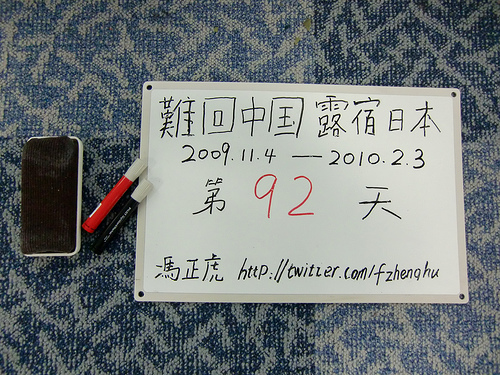 難回中国 露宿日本
2009.11.4 — 2010.2.3
第 92 天
馮正虎 http://twitter.com/fzhenghu